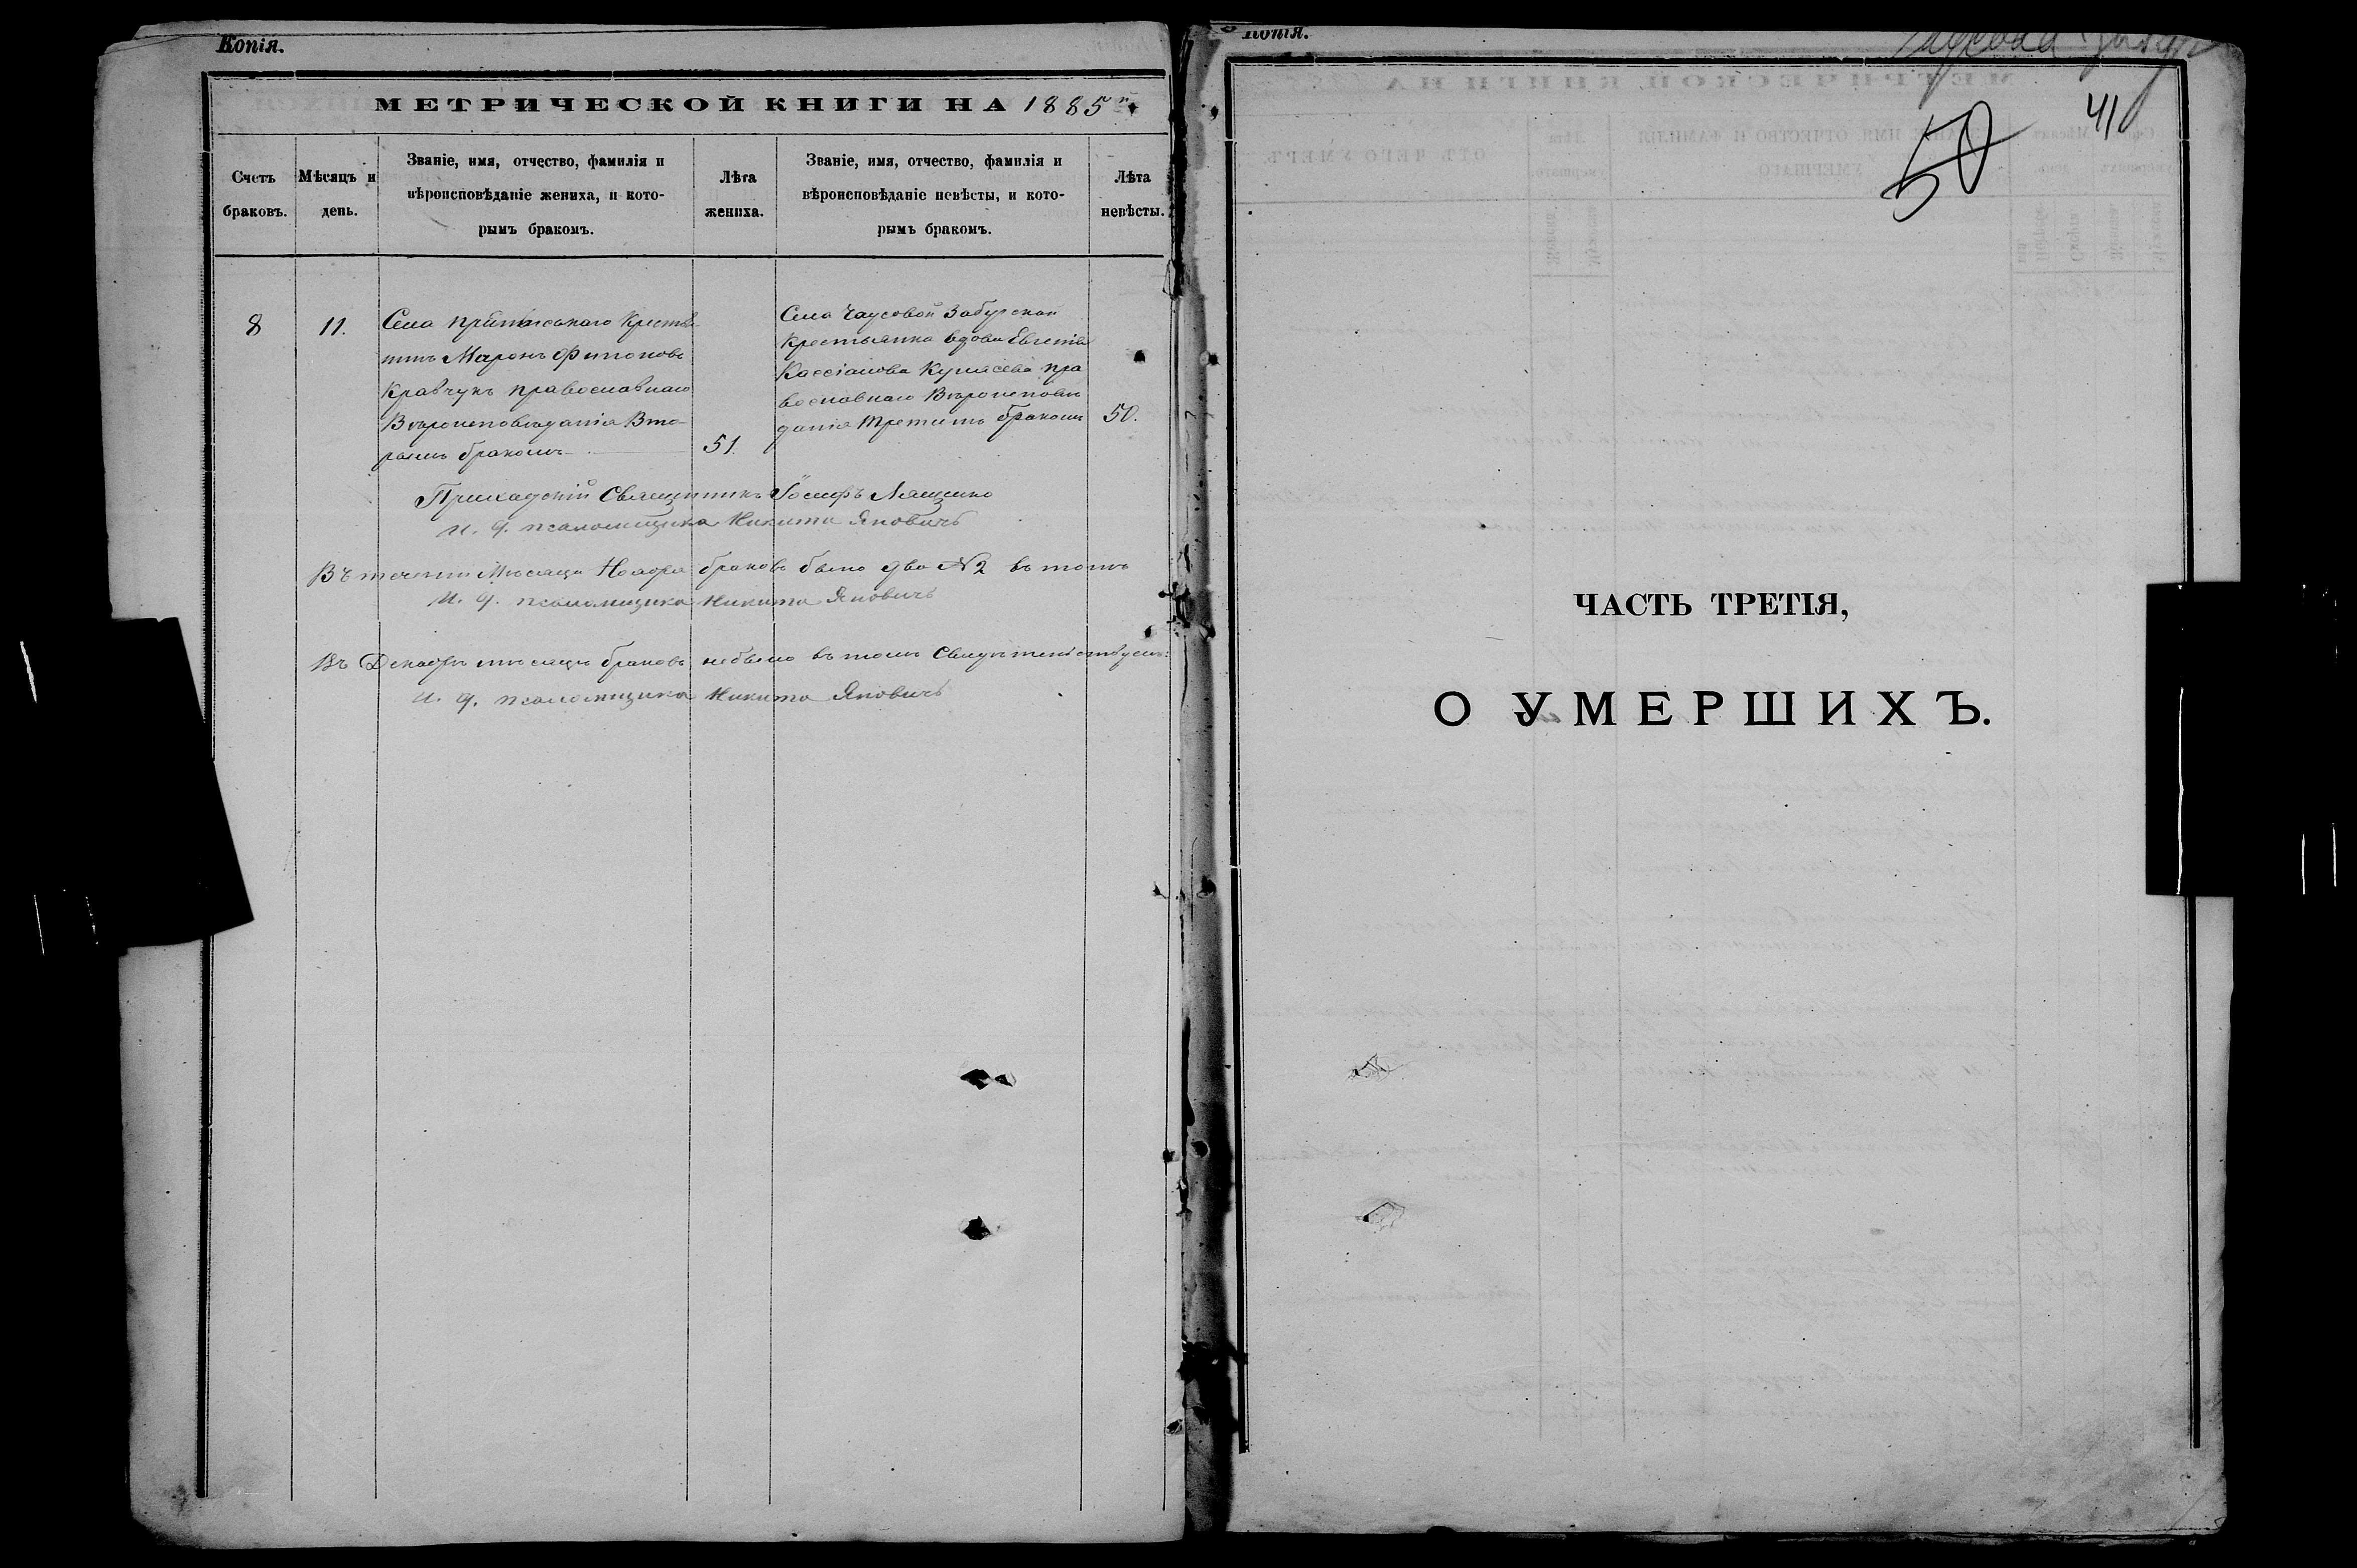 Копія.
МЕТРИЧЕСКОЙ КНИГИ НА 1885
Счетъ браковъ.
Мѣсяцъ и день.
Званіе, имя, отчество, фамилія и вѣроисповѣданіе жениха, и которымъ бракомъ.
Лѣта жениха.
Званіе, имя, отчество, фамилія и вѣроисповѣданіе невѣсты, и которымъ бракомъ.
Лѣта невѣсты.
8
11.
Села Кресть-
Кравчукъ православнаго
Вѣроисповѣданія Вто-
рымъ бракомъ
51.
Села Чаусовой Забугской
Крестьянка вдова Евгенія
Кассіанова пра
вославнаго Вѣроисповѣ
данія третимъ бракомъ
50.
Приходскій Священникъ Іосифъ Лященко
И. д. псаломщика Никита Яновичъ
Въ теченіи Мѣсяца Ноября браковъ было два №2 въ томъ
И. д. псаломщика Никита Яновичъ
Въ Декабрѣ мѣсяцѣ браковъ небыло въ томъ
И. д. псаломщика Никита Яновичъ
Копія.
50
41
ЧАСТЬ ТРЕТІЯ,
О УМЕРШИХЪ.